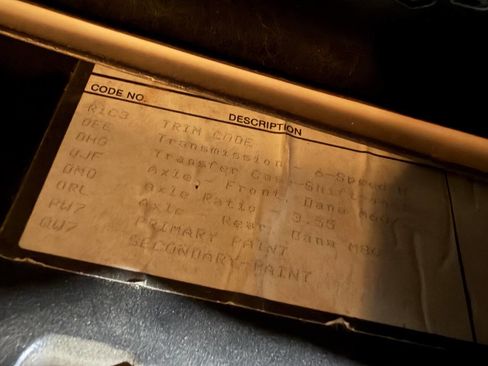 CODE NO. DESCRIPTION
TRIM CODE
DEE Transmission - 6-Speed M
DHG Transfer Case-
Axle - Front Dana M60/
DMD Axle Ratio - 3.55
DRL Axle - Rear Dana M80
PW7 PRIMARY PAINT
QW7 SECONDARY PAINT